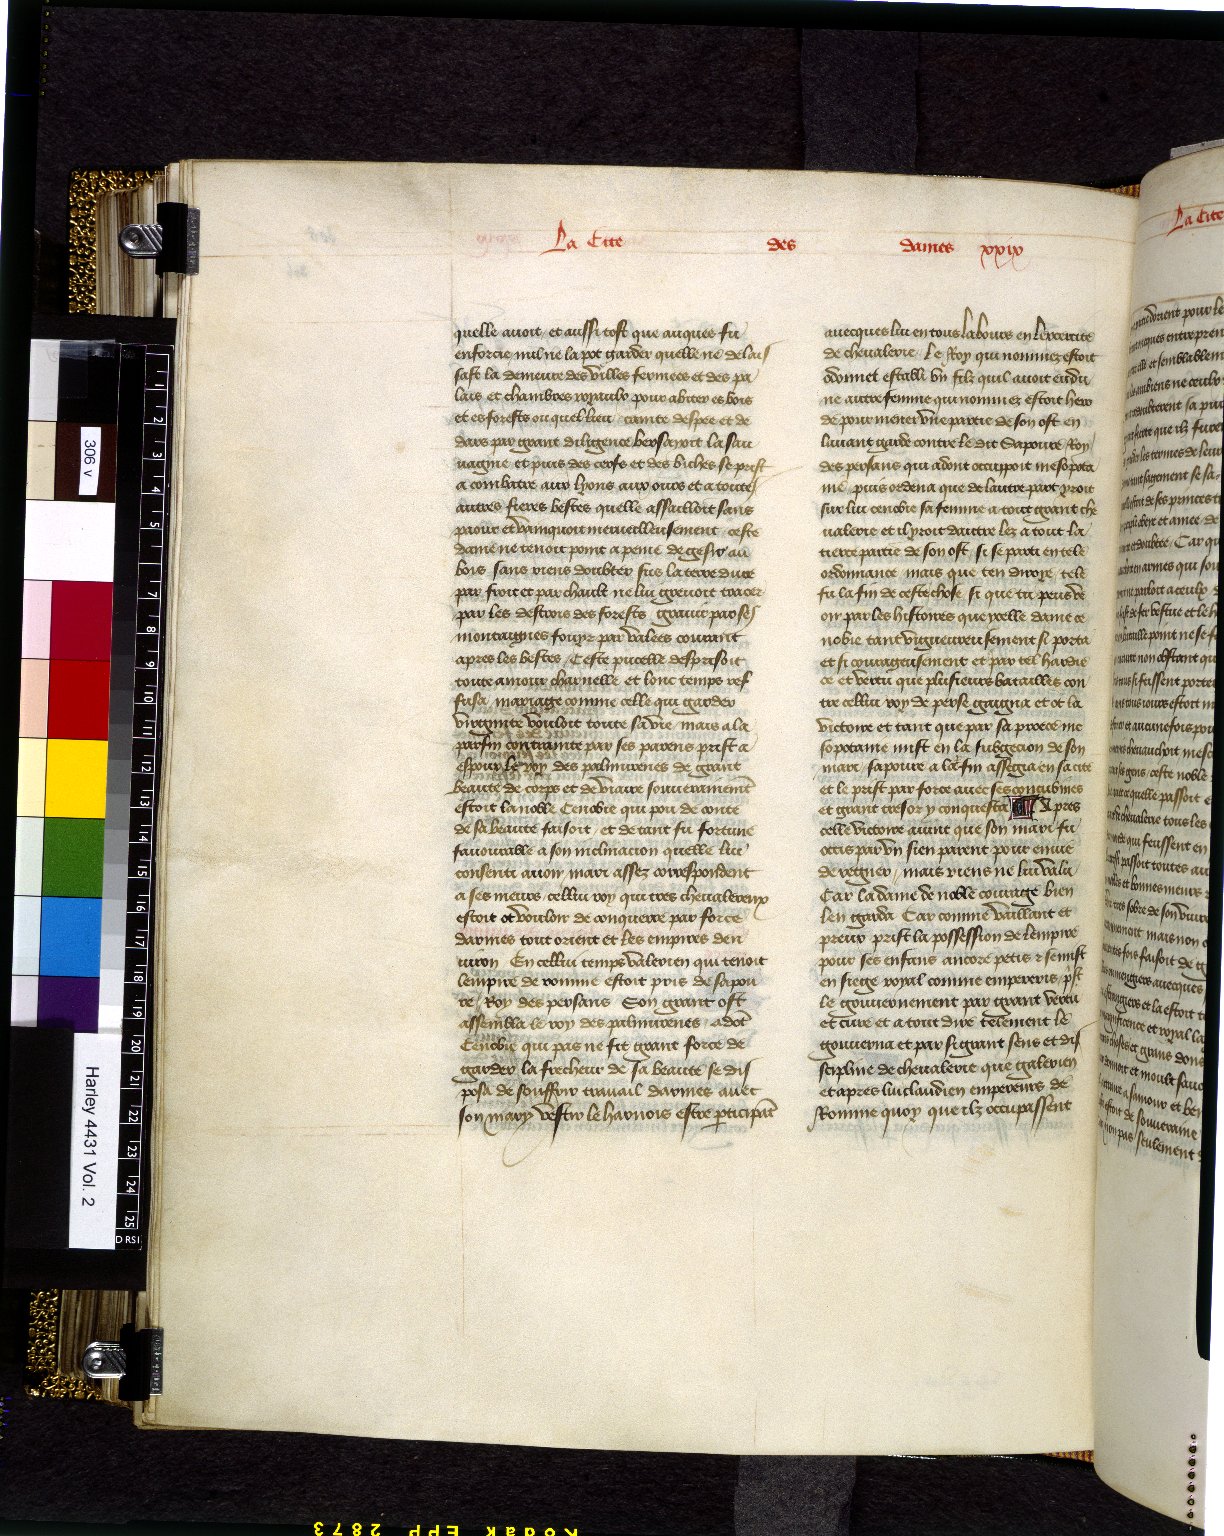 La Cite des dames xxix
quelle auoit / et aussi tost que auques fu
enforcie nul ne la pot garder quelle ne delais
sast la demeure des villes fermees et des pa
lais et chambres royaulx pour abiter es bois
et es forests ou quel lieu / cainte despee et de
dars par grant diligence bersaioit la sau
uagine et puis des cerfs et des biches se prist
a combatre aux lyons aux ours et a toutes
autres fieres bestes quelle assailloit sans
paour et vainquoit merueilleusement ceste
dame ne tenoit point a peine de gesir au
bois sans riens doubter sus la terre dure
par froit et par chault ne lui greuoit tracer
par les destrois des forests grauir par ses
montaignes fouyr par valees courant
apres les bestes / Ceste pucelle desprisoit
toute amour charnelle et lonc temps ref
fusa mariage comme celle qui garder
virginite vouloit toute sa vie / mais a la
parfin contrainte par ses parens prist a
espoux le roy des palmurenes de grant
beaute de corps et de viaire souuerainement
estoit la noble Cenobie qui pou de conte
de sa beaute faisoit / et de tant fu fortune
fauourable a son inclinacion quelle lui
consenti auoir mari assez correspondent
a ses meurs cellui roy qui tres cheualereux
estoit ot vouloir de conquerre par force
darmes tout orient et les empires den
uiron En cellui temps valerien qui tenoit
lempire de romme estoit pris de sapou
re / Roy des persans Son grant ost
assembla le roy des palmurenes adot
Cenobie qui pas ne fit grant force de
garder la frecheur de sa beaute se dis
posa de souffrir trauail darmes auec
son mary vestir le harnois estre participant
auecques lui en tous labours en lexercite
de cheualerie Le Roy qui nommez estoit
odonnet establi vn filz quil auoit eu du
ne autre femme qui nommez estoit hero
de pour mener vne partie de son ost en
lauant garde contre le dit Sapoure Roy
des persans qui adont occuppoit mesopota
mie puis ordena que de lautre part yroit
sur lui cenobie sa femme a tout grant che
ualerie et il yroit dautre lez a tout la
tierce partie de son ost si se parti en tele
ordonnance mais que ten diroye tele
fu la fin de ceste chose si que tu peus ve
oir par les histoires que ycelle dame ce
nobie tant vigueureusement si porta
et si courageusement et par tel hardie
ce et vertu que plusieurs batailles con
tre cellui roy de perse gaigna et ot la
victoire et tant que par sa proece me
sopotaine mist en la subgecion de son
mari / sapoure a la fin assegia en sa cite
et le prist par force auec ses concubines
et grant tresor y conquesta A Apres
celle victoire auint que son mari fu
occis par vn sien parent pour enuie
de regner / mais riens ne lui valu
Car la dame de noble courage bien
len garda Car comme vaillant et
preux prist la possession de lempire
pour ses enfans ancore petis & se mist
en siege royal comme empereris / prist
le gouuernement par grant vertu
et cure et a tout dire telement le
gouuerna et par si grant sens et dis
scipline de cheualerie que galerien
et apres lui claudien empereurs de
Romme quoy que ilz occupassent
La Cite
306 v
Harley 4431 Vol. 2
1
2
3
4
5
6
7
8
9
10
11
12
13
14
15
16
17
18
19
20
21
22
23
24
25
Kodak EPP 2873